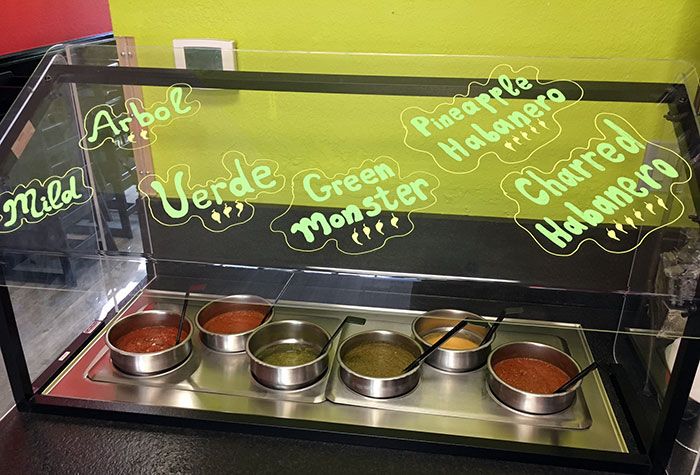 Mild
Arbol
Verde
Green
Monster
Pineapple
Habanero
Charred
Habanero